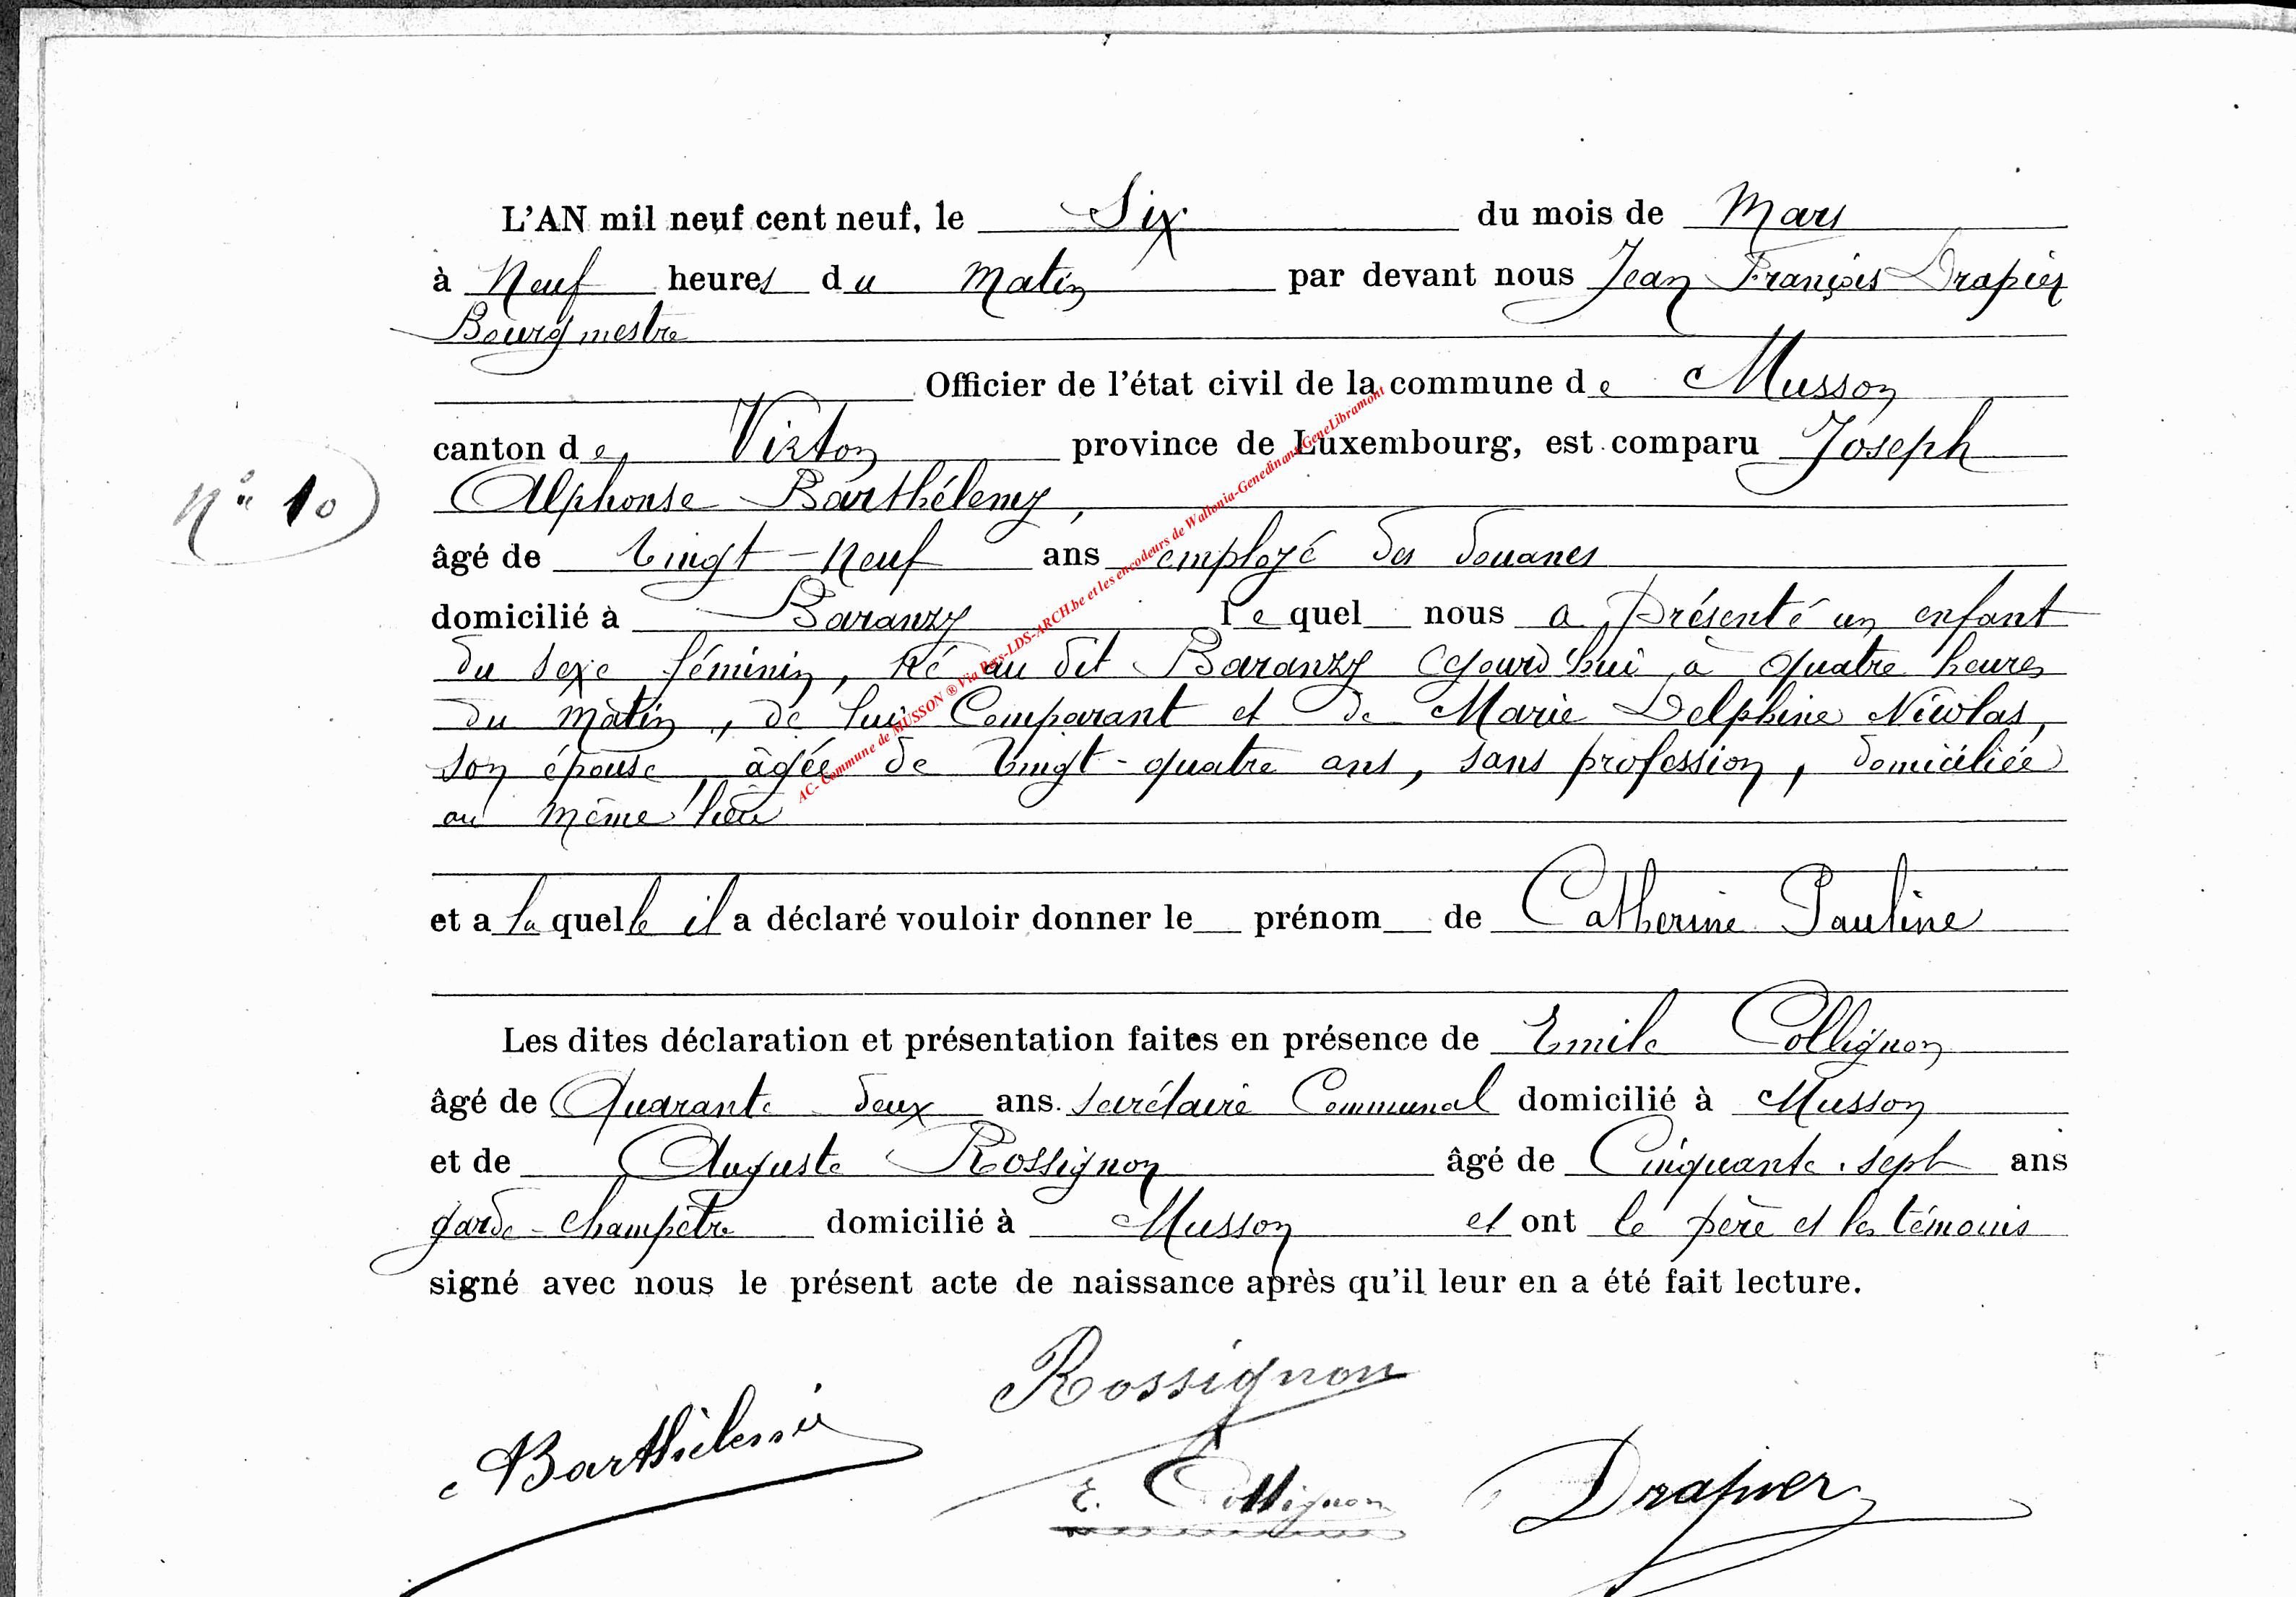 L'AN mil neuf cent neuf, le Six du mois de Mars
à Neuf heures du Matin par devant nous Jean François Drapier
Bourgmestre
Officier de l'état civil de la commune de Musson
canton de Virton province de Luxembourg, est comparu Joseph
N° 10
Alphonse Barthélemy,
âgé de Vingt-Neuf ans employé des douanes
domicilié à Baranzy lequel nous a présenté un enfant
du sexe féminin, né au dit Baranzy aujourd'hui à quatre heures
du matin, de lui Comparant et de Marie Delphine Nicolas,
son épouse, âgée de Vingt-quatre ans, sans profession, domiciliée
au même lieu
et a laquelle il a déclaré vouloir donner le prénom de Catherine Pauline
Les dites déclaration et présentation faites en présence de Emile Collignon
âgé de Quarante deux ans. secrétaire Communal domicilié à Musson
et de Auguste Rossignon âgé de Cinquante-sept ans
garde-champêtre domicilié à Musson et ont le père et les témoins
signé avec nous le présent acte de naissance après qu'il leur en a été fait lecture.
Rossignon
Barthélemi
E. Collignon
Drapier
AC-Commune de MUSSON ® Via Pers-LDS-ARCH.be et les encodeurs de Wallonia-Genedinant-GeneLibramont